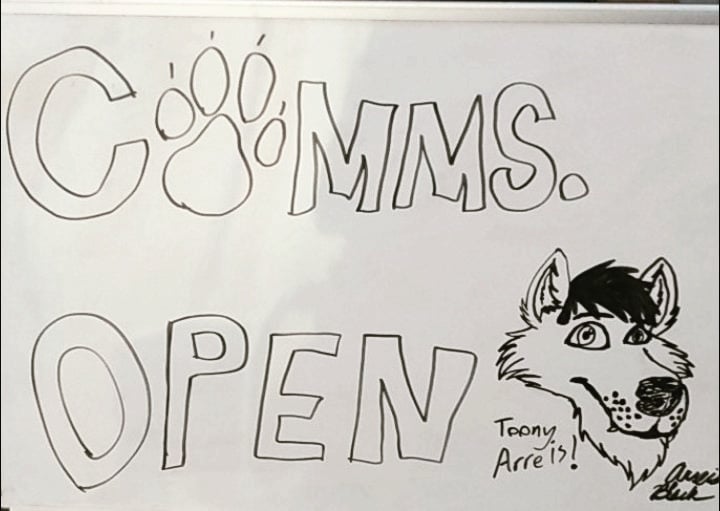 COMMS.
OPEN
Toony
Arreis!
Black